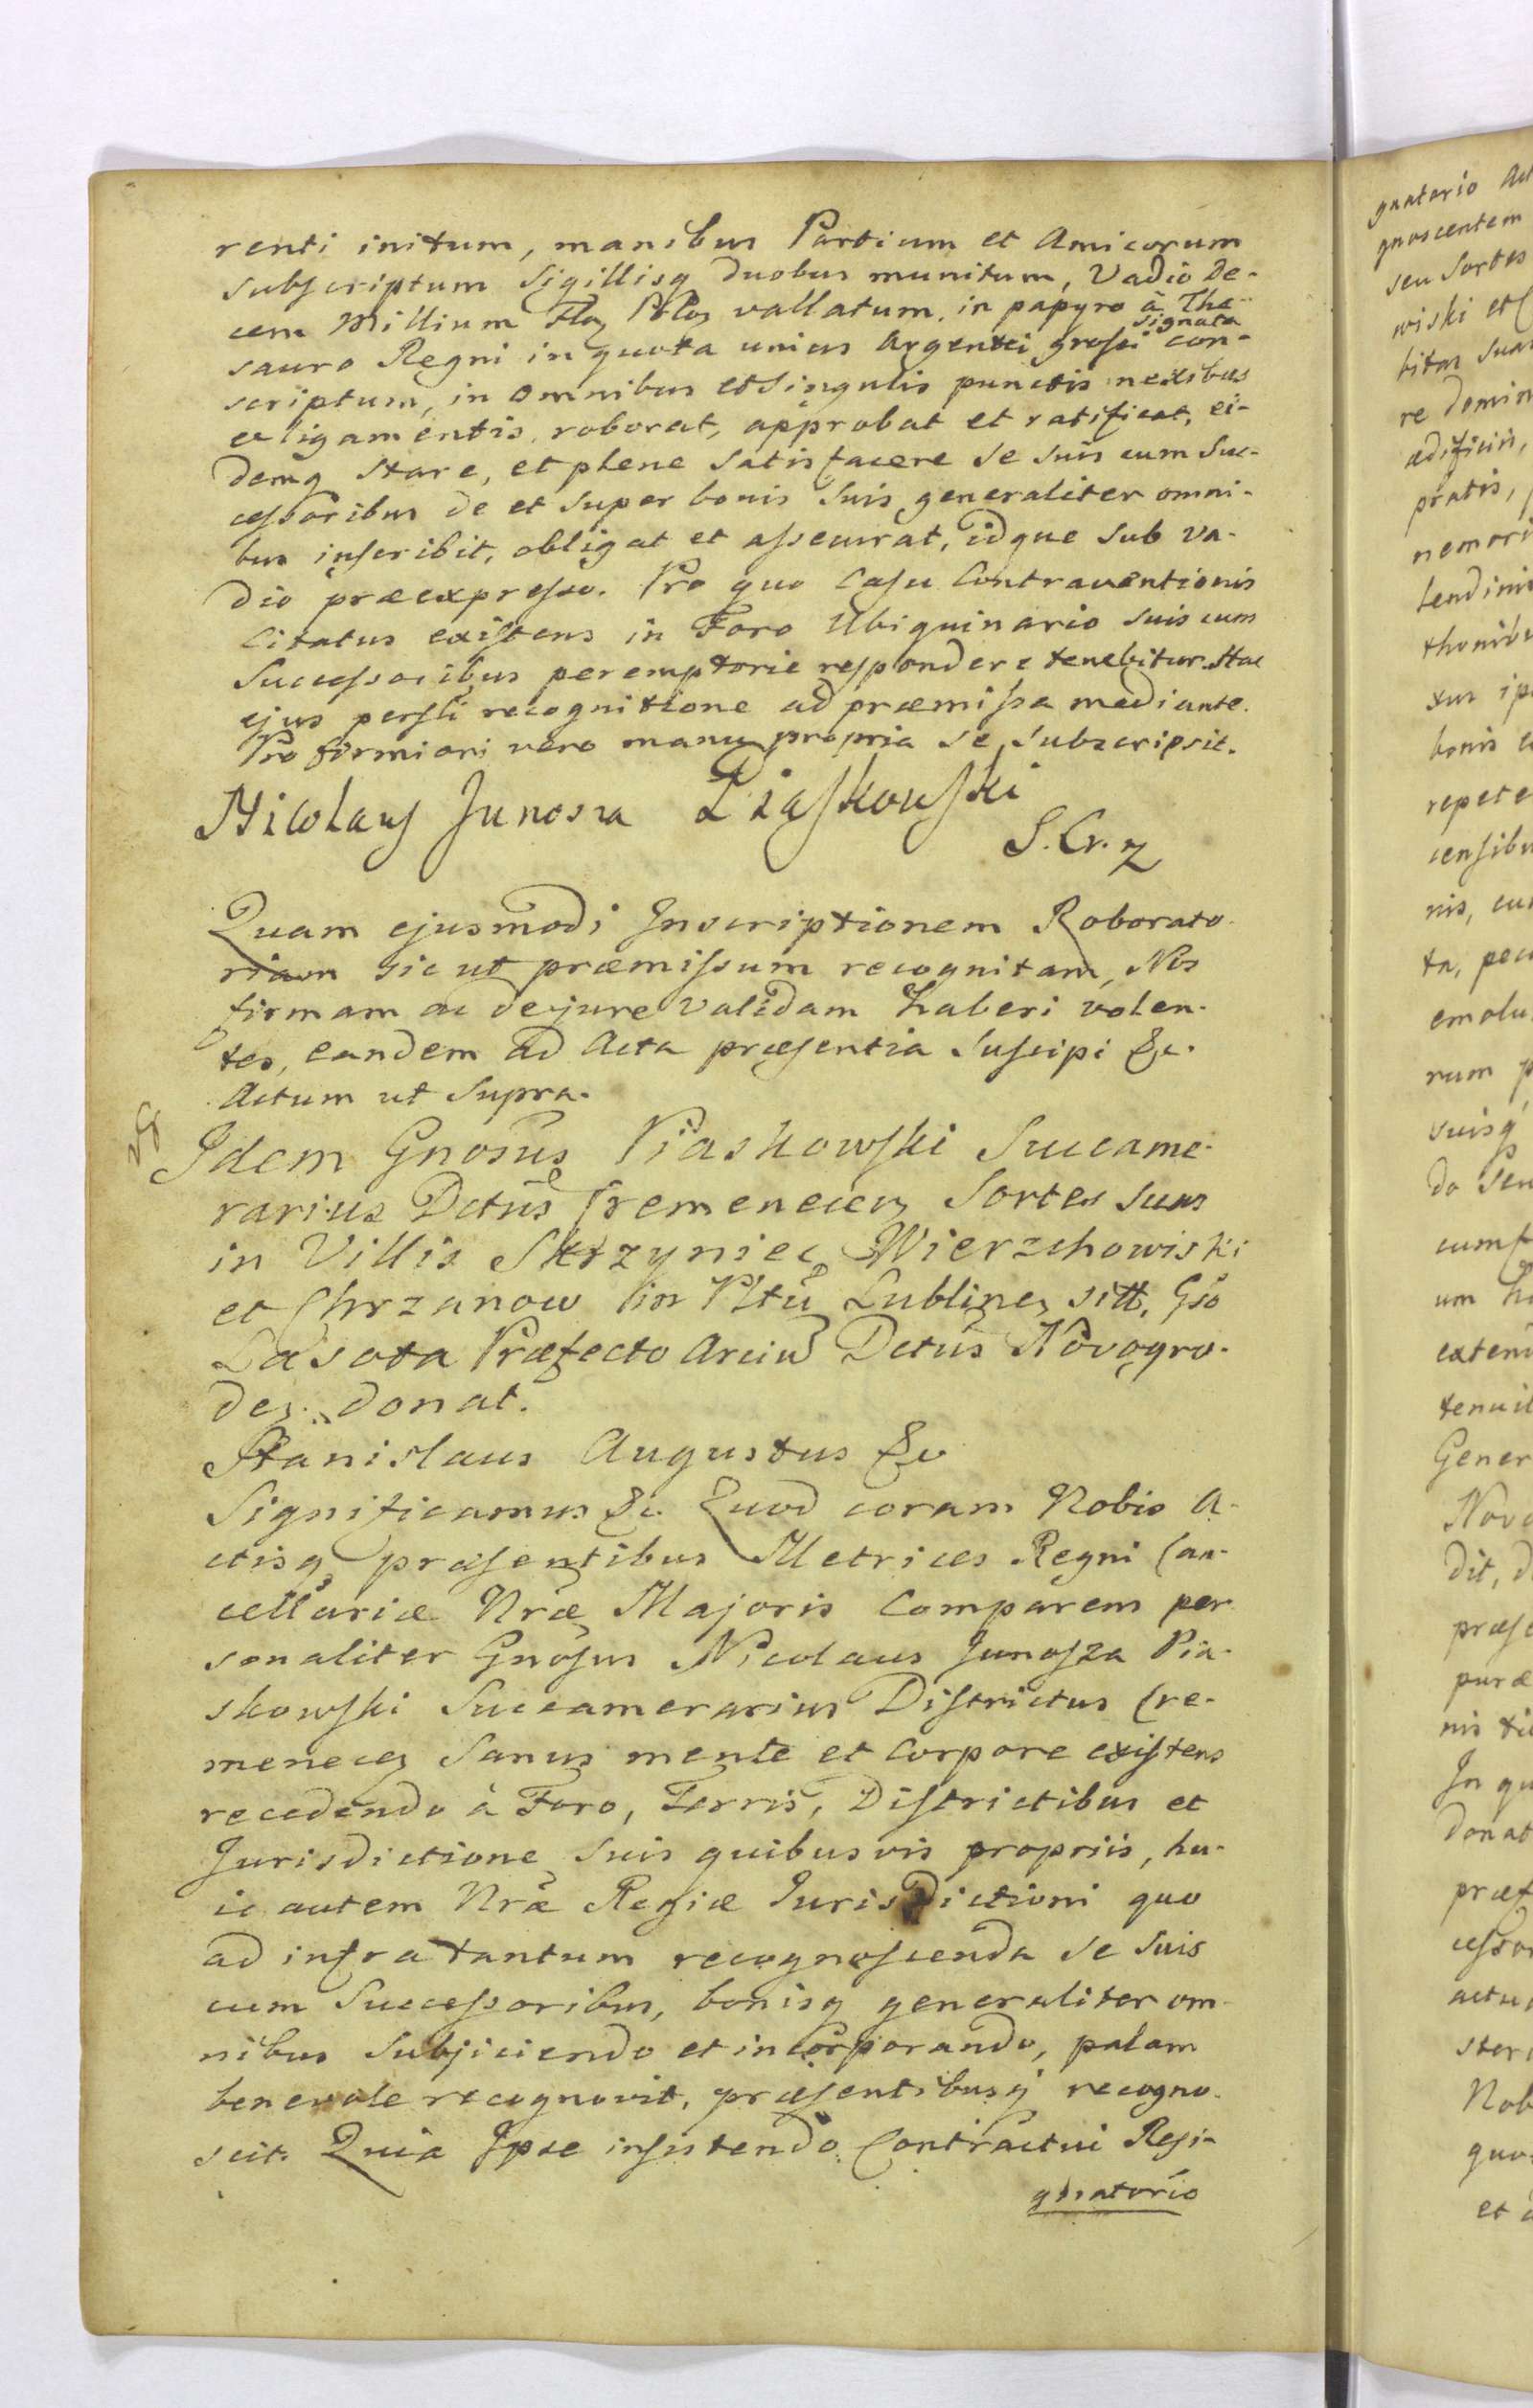 renti initum, manibus Partium et Amicorum
subscriptum Sigillisq duobus munitum, Vadio De-
cem Millium Floz Ploz vallatum, in papyro à The-
signata
sauro Regni in quota unius Argentei grossi con-
scriptum, in omnibus et singulis punctis nexibus
et ligamentis, roborat, approbat et ratificat, ei-
demq stare, et plene Satisfacere Se Suis cum Suc-
cessoribus de et Super bonis Suis generaliter omni-
bus inscribit, obligat et assecurat, idque Sub va-
dio præexpresso. Pro quo Casu Contraventionis
Citatus existens in Foro Ubiquinario suis cum
Successoribus peremptorie respondere tenebitur. Hac
ejus persli recognitione ad præmissa mediante.
Pro firmiori vero manu propria Se Subscripsit.
Nicolaus Junosza Piaskowski
S. Cr.
Quam ejusmodi Inscriptionem Roborato-
riam sicut præmissum recognitam, Nos
firmam ac de jure validam haberi volen-
tes, eandem ad Acta præsentia Suscipi &c.
Actum ut Supra.
Idem Gnosus Piaskowski Succame-
rarius Dctus Cremenecen Sortes suas
in Villis Skrzyniec, Wierzchowiski
et Chrzanow in Pltu Lublinen sitt, Gso
Lasota Præfecto Arcium Dctus Novogro-
den donat.
Stanislaus Augustus &c
Significamus &c. Quod coram Nobis A-
ctisq præsentibus Metrices Regni Can-
cellariæ Nræ Majoris Comparens per
sonaliter Gnosus Nicolaus Junosza Pia-
skowski Succamerarius Districtus Cre-
menecen Sanus mente et Corpore existens
recedendo à Foro, Terris, Districtibus et
Jurisdictione Suis quibusvis propriis, hu-
ic autem Nræ Regiæ Jurisdictioni quo
ad infra tantum recognoscenda Se Suis
cum Successoribus, bonisq generaliter om-
nibus Subjiciendo et incorporando, palam
benevole recognovit, præsentibusq recogno-
scit. Quia Ipse insistendo Contractui Resi-
gnatorio
gnatorio
gnoscentem
seu Sortes
wiski et
re domin
ædificiis,
pratis,
bonis
repete
censibu
nis,
emolu
rum
suisq
do seu
um
Gener
Novo
dit,
In qu
donat
præf
Nob
quo
et